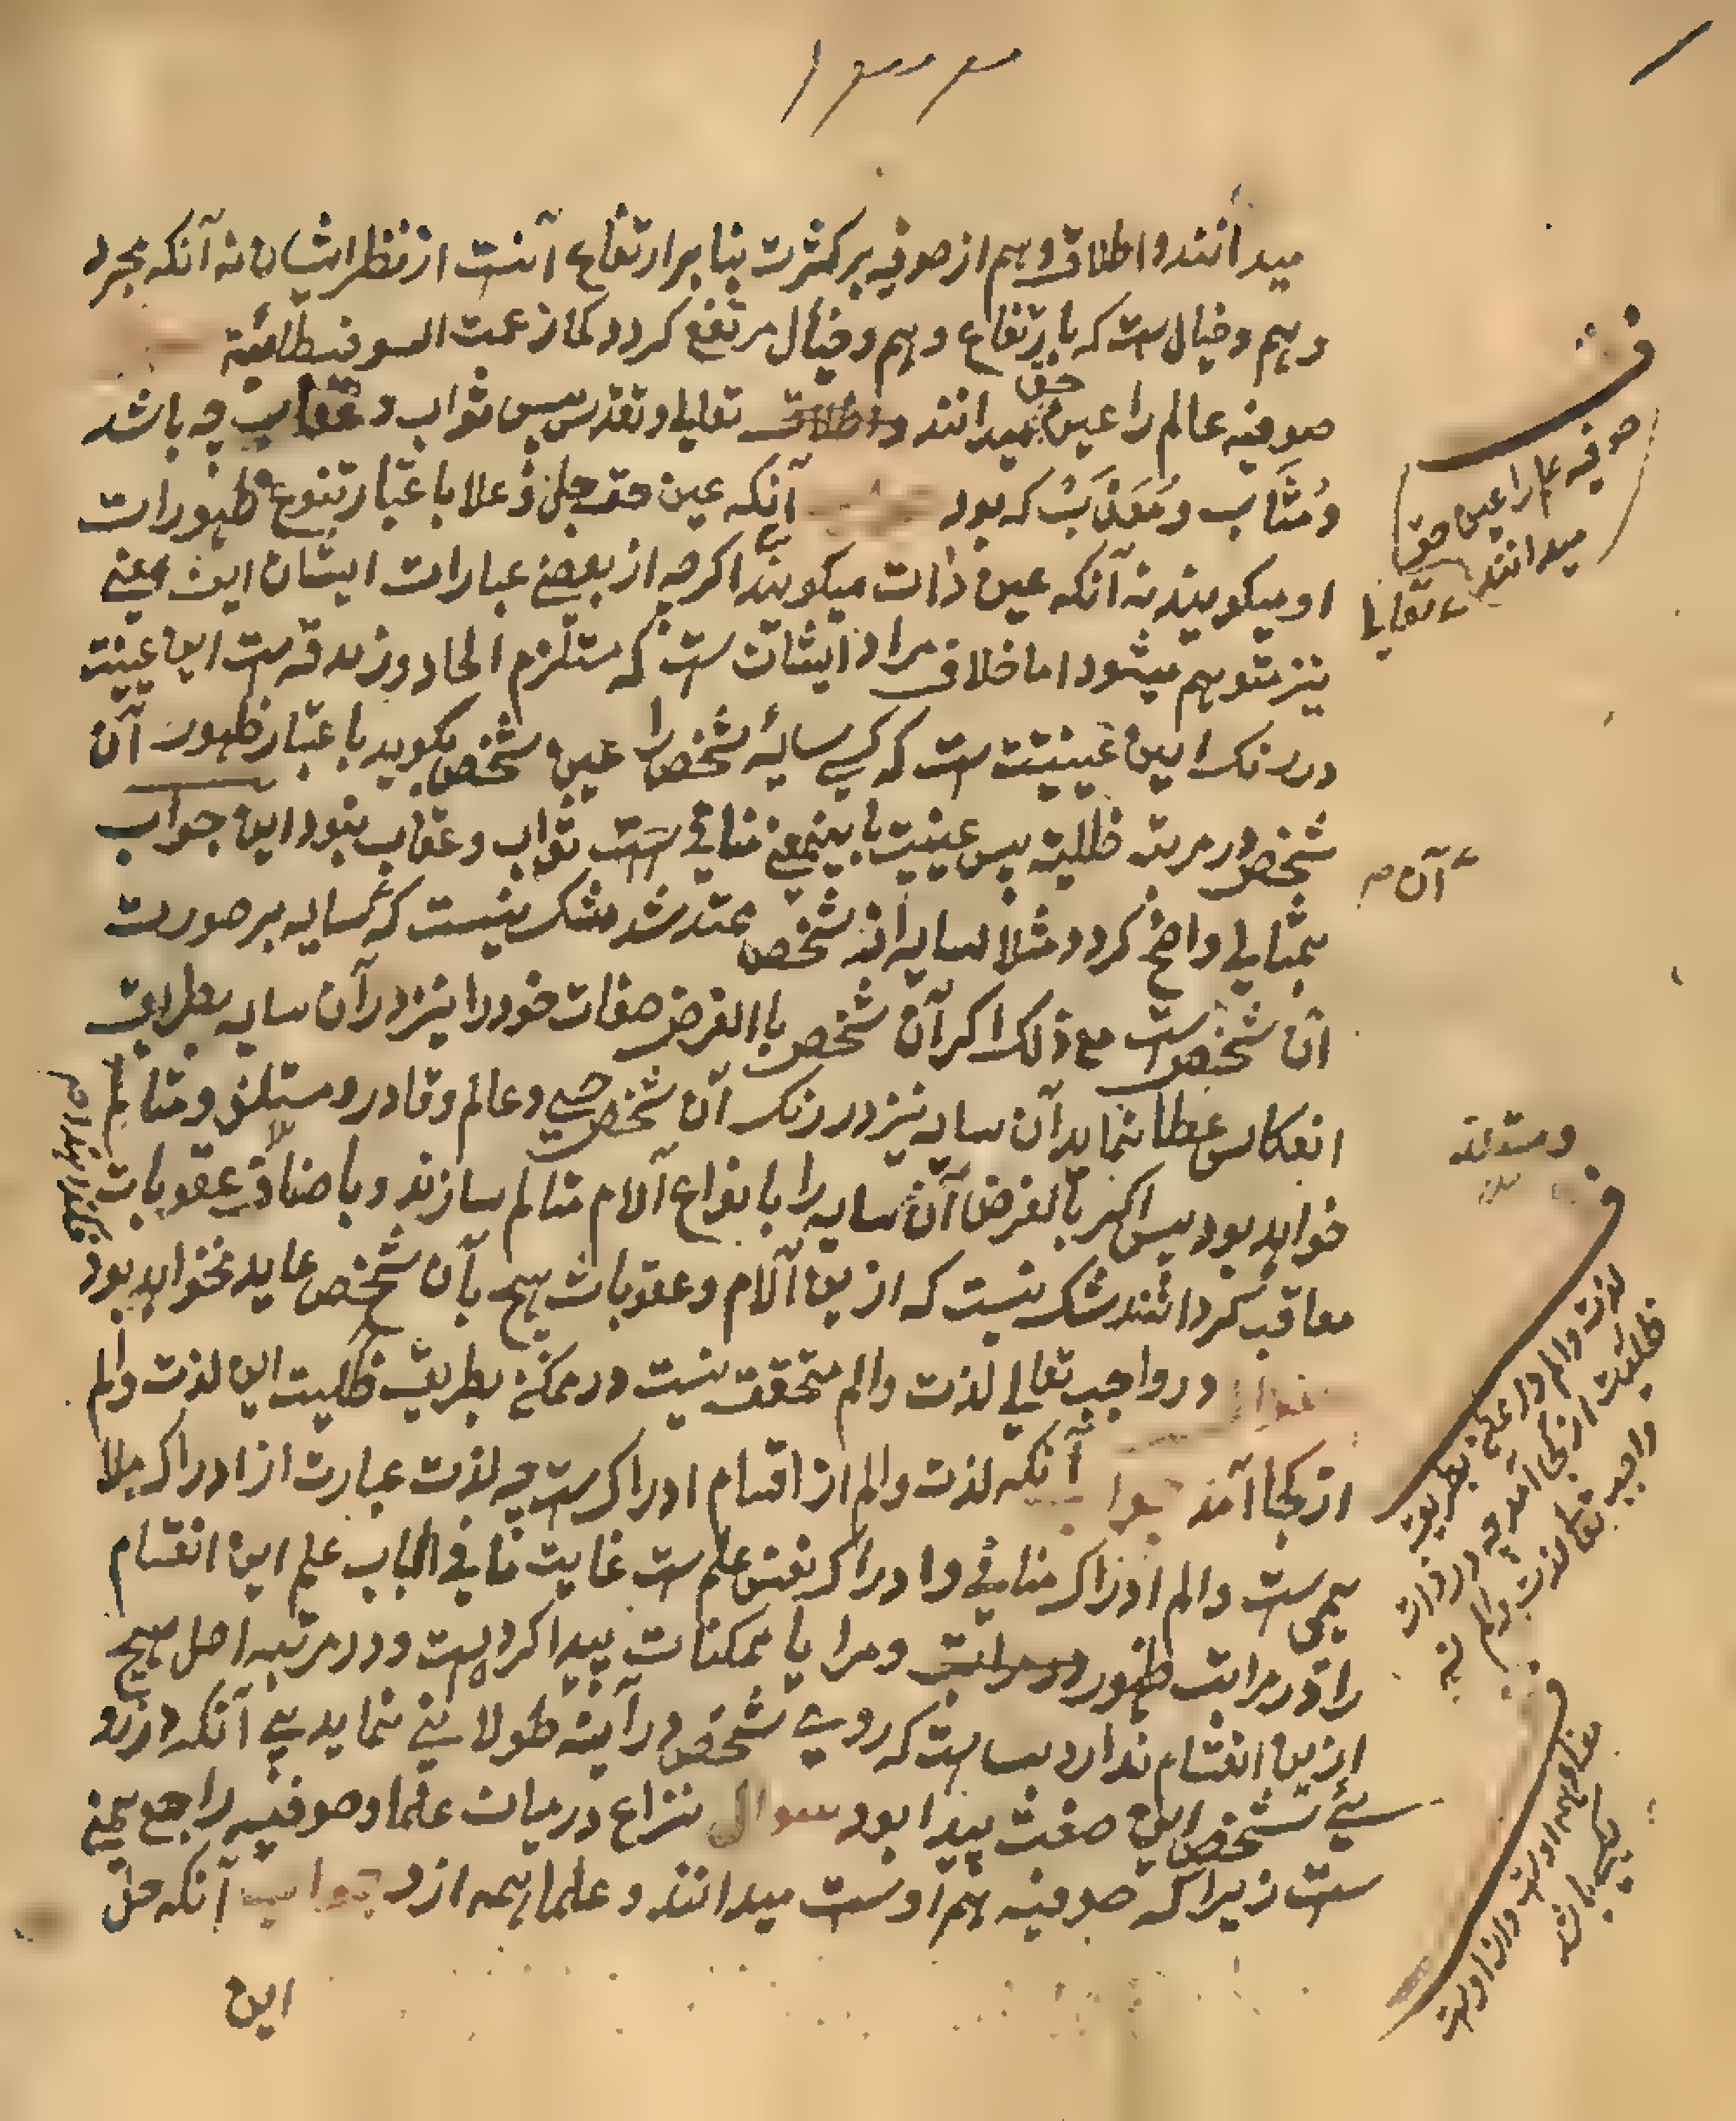 میدانند و اطلاق وهم از صوفیه بر کثرت بنا بر ارتفاع آنست از نظر ایشان نه آنکه مجرد
وهم و خیال ست که بارتفاع وهم و خیال مرتفع کردد کما زعمت السوفسطائیة
صوفیه عالم را عین حق میدانند تعالی و تقدس پس ثواب و عقاب چه باشد
و مُثَاب و مُعَذَّب که بود آنکه عین حق جل و علا باعتبار تنوع ظهورات
او میکویند نه آنکه عین ذات میکویند اکرچه از بعضے عبارات ایشان این معنے
نیز متوهم میشود اما خلاف مراد ایشان ست که مستلزم الحاد و زندقه ست این عینیت
در رنک این عینیت ست که کسے سایۀ شخص را عین شخص بکوید باعتبار ظهور آن
شخص در مرتبه ظلیة پس عینیت باینمعنے منافے ثواب و عقاب نبود این جواب
بمثالے واضح کردد مثلا سایه از شخص ممتد شد شک نیست که سایه بر صورت
آن شخص ست مع ذلک اکر آن شخص بالفرض صفات خود را نیز در آن سایه بطریق
انعکاس عطا نماید آن سایه نیز در رنک آن شخص حی و عالم و قادر و متلذذ و متالم
خواهد بود پس اکر بالفرض آن سایه را بانواع آلام متالم سازند و باصناف عقوبات
معاقب کردانند شک نیست که ازین آلام و عقوبات هیچ بآن شخص عاید نخواهد بود
در واجب تعالے لذت و الم متحقق نیست در ممکن بطریق ظلیت این لذت و الم
از کجا آمد جواب آنکه لذت و الم از اقسام ادراک ست چه لذت عبارت از ادراک ملا
یمی ست و الم ادراک منافے و ادراک نفس علم ست غایت ما فی الباب علم این انقسام
را در مراتب ظهور و مرایا ممکنات پیدا کرده است و در مرتبه اصل هیچ
ازین انقسام ندارد بسا ست که روے شخص در آینه طولانی نماید بے آنکه در رو
ئے شخص این صفت پیدا بود سوال نزاع در میان علما و صوفیه راجع بمعنے
ست زیرا که صوفیه همه اوست میدانند و علما همه ازو جواب آنکه حل
این
صوفیه عالم را عین حق
میدانند تعالی
آن
لذت و الم در عالم بطریق
ظلیت از کجا آمد چه در ذات
واجب تعالی لذت و الم نه
همه اوست و از اوست
یکے باشد